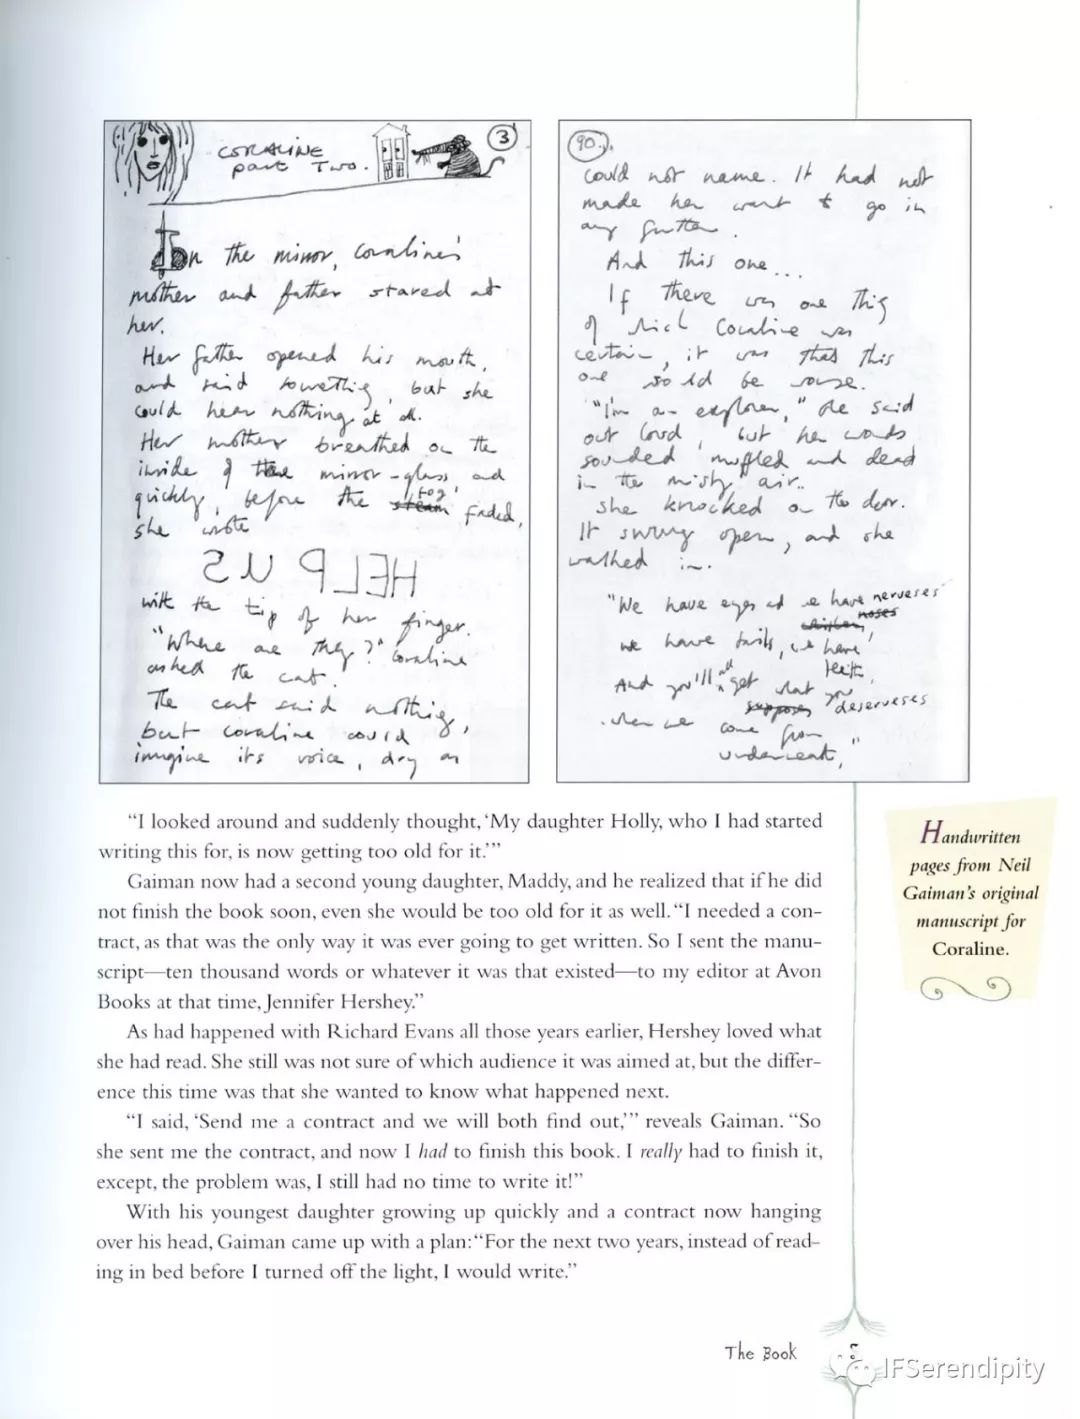 CORALINE
part Two.
3
In the mirror, Coraline's
mother and father stared at
her.
Her father opened his mouth,
and said something, but she
could hear nothing at all.
Her mother breathed on the
inside of the mirror-glass, and
quickly, before the steam fog faded,
she wrote
HELP US
with the tip of her finger.
"Where are they?" Coraline
asked the cat.
The cat said nothing,
but Coraline could
imagine its voice, dry as
90.
could not name. It had not
made her want to go in
any further.
And this one...
If there was one thing
of which Coraline was
certain, it was that this
one would be worse.
"I'm an explorer," she said
out loud, but her words
sounded muffled and dead
in the misty air.
She knocked on the door.
It swung open, and she
walked in.
"We have eyes and we have nerveses
noses
we have tails, we have
teeth,
And you'll all get what you
supposes deserveses
when we come from
underneath,"
“I looked around and suddenly thought, ‘My daughter Holly, who I had started
writing this for, is now getting too old for it.’”
Gaiman now had a second young daughter, Maddy, and he realized that if he did
not finish the book soon, even she would be too old for it as well. “I needed a con-
tract, as that was the only way it was ever going to get written. So I sent the manu-
script—ten thousand words or whatever it was that existed—to my editor at Avon
Books at that time, Jennifer Hershey.”
As had happened with Richard Evans all those years earlier, Hershey loved what
she had read. She still was not sure of which audience it was aimed at, but the differ-
ence this time was that she wanted to know what happened next.
“I said, ‘Send me a contract and we will both find out,’” reveals Gaiman. “So
she sent me the contract, and now I had to finish this book. I really had to finish it,
except, the problem was, I still had no time to write it!”
With his youngest daughter growing up quickly and a contract now hanging
over his head, Gaiman came up with a plan: “For the next two years, instead of read-
ing in bed before I turned off the light, I would write.”
Handwritten
pages from Neil
Gaiman’s original
manuscript for
Coraline.
The Book
IFSerendipity